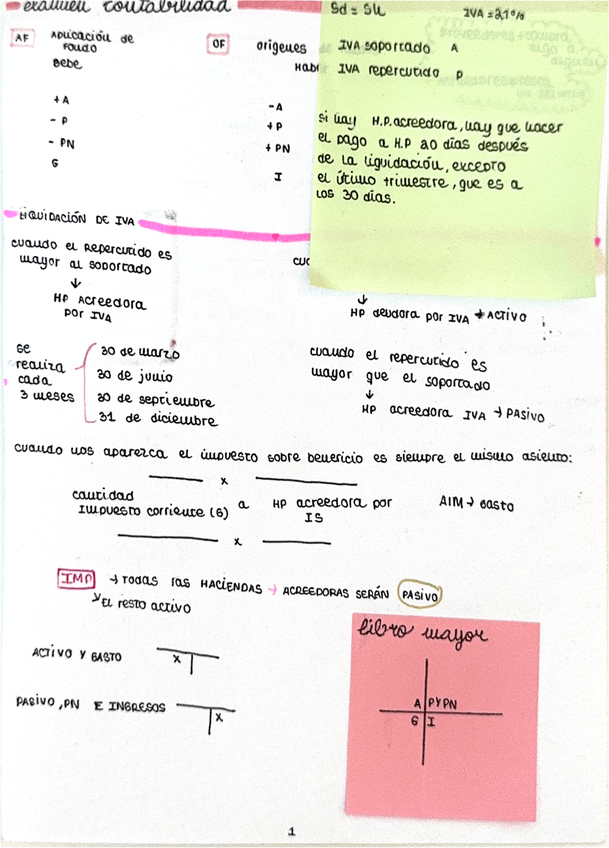 examen contabilidad
AF
Aplicación de
fondo
Debe
OF
orígenes
Habe
+A
-P
-PN
G
-A
+P
+PN
I
Sd = SK
IVA = 21%
IVA soportado A
IVA repercutido P
si hay H.P. acreedora, hay que hacer
el pago a H.P 20 días después
de la liquidación, excepto
el último trimestre, que es a
los 30 días.
LIQUIDACIÓN DE IVA
cuando el Repercutido es
mayor al soportado
↓
HP Acreedora
por IVA
↓
HP deudora por IVA → ACTIVO
se
realiza
cada
3 meses
30 de marzo
30 de junio
30 de septiembre
31 de diciembre
cuando el repercutido es
mayor que el soportado
↓
HP acreedora IVA → PASIVO
cuando nos aparezca el impuesto sobre beneficio es siempre el mismo asiento:
x
cantidad
Impuesto corriente (G) a HP acreedora por
IS
AIM → Gasto
x
IMP → Todas las HACIENDAS → ACREEDORAS SERÁN PASIVO
y EL resto activo
ACTIVO Y GASTO
x
PASIVO, PN E INGRESOS
x
libro mayor
A P Y PN
G I
1